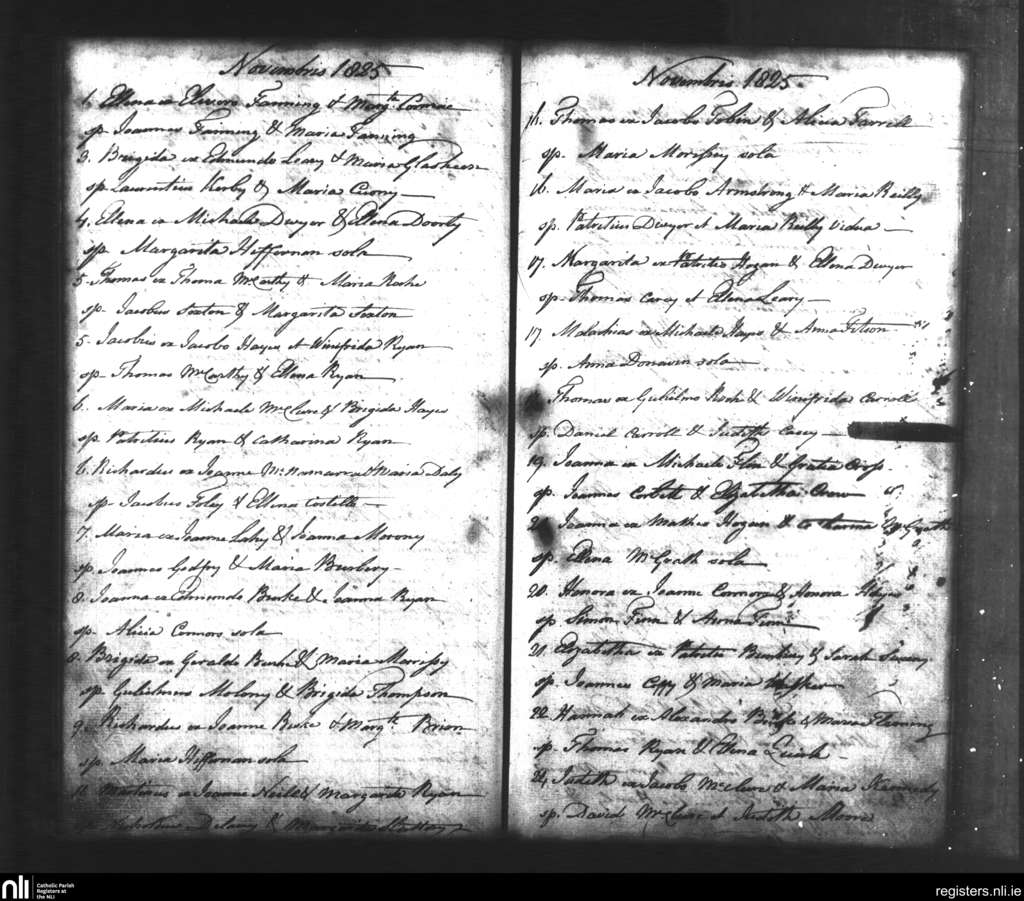 Novembris 1825
1. Ellena ex Elworo Fanning & Margta Comrae
sp. Joannes Fanning & Maria Fanning
3. Brigida ex Edmundo Leary & Maria Glasheen
sp. Laurentius Kerby & Maria Crony
4. Ellena ex Michaele Dwyer & Ellena Doorty
sp. Margarita Heffernan sola
5. Thomas ex Thoma McCarthy & Maria Roche
sp. Jacobus Sexton & Margarita Sexton
5. Jacobus ex Jacobo Hayes et Winifrida Ryan
sp. Thomas McCarthy & Ellena Ryan
6. Maria ex Michaele McClure & Brigida Hayes
sp. Patritius Ryan & Catharina Ryan
6. Richardus ex Joanne McNamara & Maria Daly
sp. Jacobus Foley & Ellena Costello
7. Maria ex Joanne Lahy & Joanna Morony
sp. Joannes Godfry & Maria
8. Joanna ex Edmundo Burke & Joanna Ryan
sp. Alicia Connors sola
8. Brigida ex Geraldo Burke & Maria Morissy
sp. Gulielmus Molony & Brigida Thompson
9. Richardus ex Joanne Burke & Margta Brien
sp. Maria Heffernan sola
11. Martinus ex Joanne Neile & Margarita Ryan
sp. Nicholaus Delany & Margarita
Novembris 1825
Thomas ex Jacobo Tobin & Alicia Farrell
sp. Maria Morissy sola
16. Maria ex Jacobo Armstrong & Maria Reilly
sp. Patritius Dwyer et Maria Reilly vidua
17. Margarita ex Patritio Hogan & Ellena Dwyer
sp. Thomas Carey et Ellena Leary
17. Malachias ex Michaele Hayes & Anna
sp. Anna Donavin sola
Thomas ex Gulielmo Roche & Winifrida Carroll
sp. Daniel Carroll & Judith Casey
19. Joanna ex Michaele Flin & Gratia Cross
sp. Joannes Corbett & Elizabetha Crow
Joanna ex Matheo Hogan & McGrath
sp. Ellena McGrath sola
20. Honora ex Joanne Connors & Honora
sp. Simon Finn & Anna Finn
21. Elizabetha ex Patritio & Sarah
sp. Joannes & Maria
22. Hannah ex Alexandro & Maria Fleming
sp. Thomas Ryan & Ellena
24. Judith ex Jacobo McClure & Maria Kennedy
sp. David McClure et Judith Moore
nli
Catholic Parish
Registers at
the NLI
registers.nli.ie